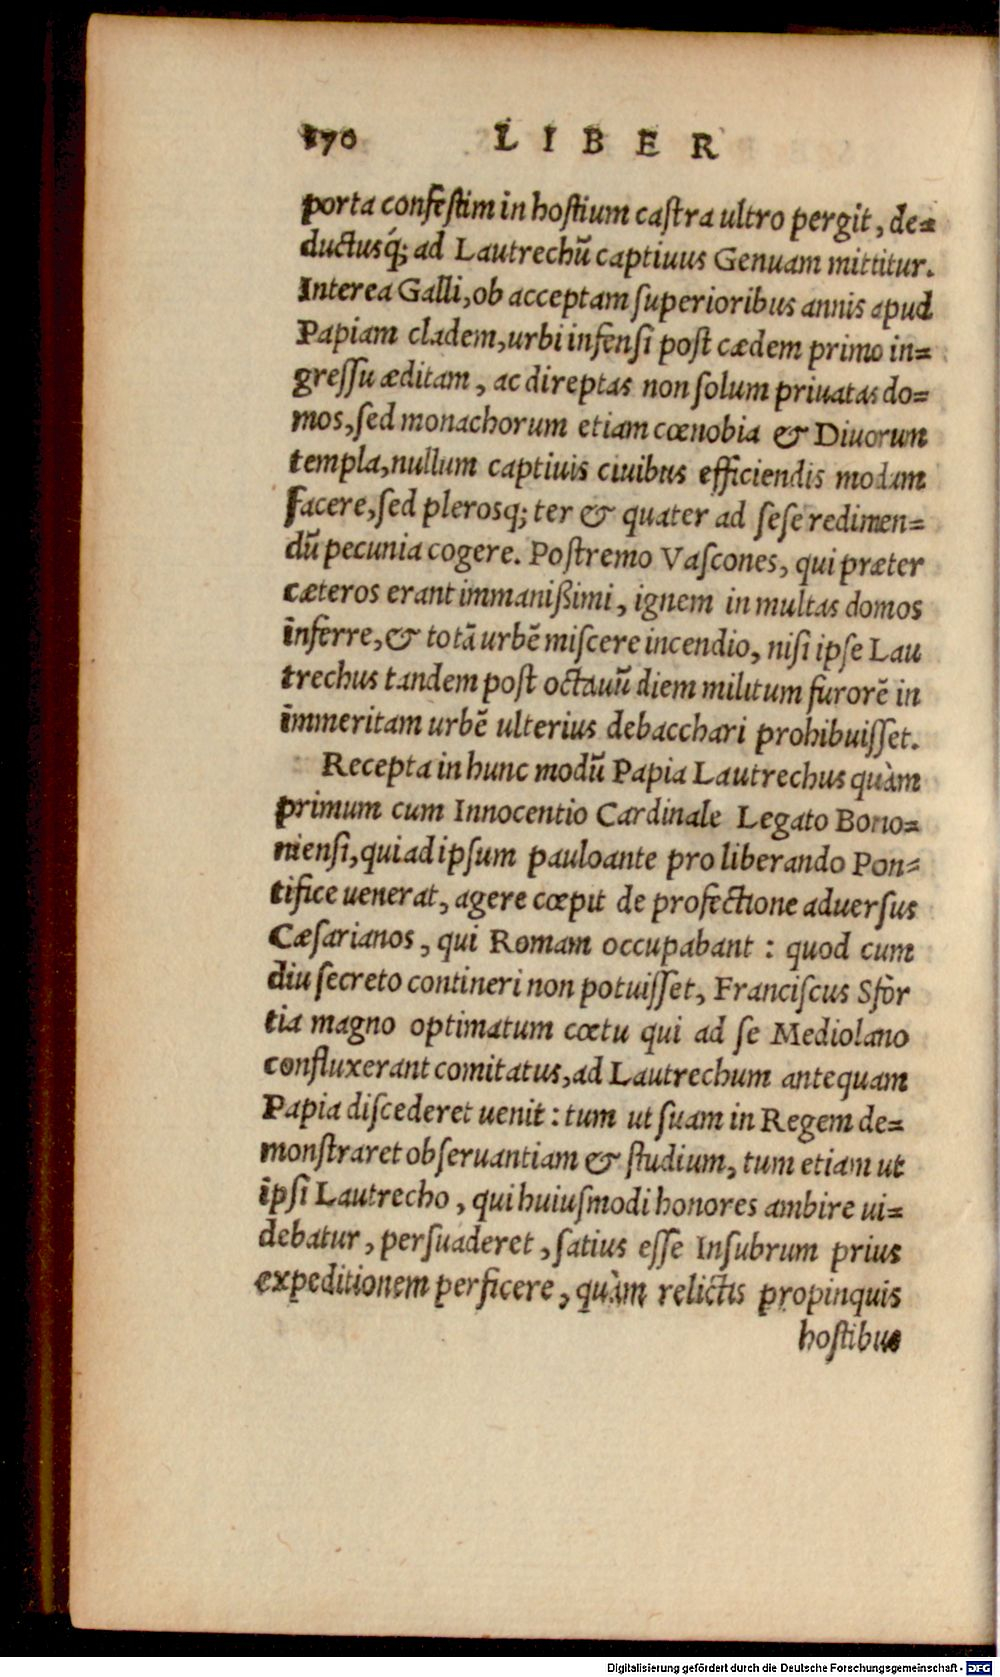 170 LIBER
porta confestim in hostium castra ultro pergit, de=
ductusq́; ad Lautrechũ captiuus Genuam mittitur.
Interea Galli, ob acceptam superioribus annis apud
Papiam cladem, urbi infensi post cædem primo in=
gressu æditam, ac direptas non solum priuatas do=
mos, sed monachorum etiam cœnobia & Diuorum
templa, nullum captiuis ciuibus efficiendis modum
facere, sed plerosq; ter & quater ad sese redimen=
dũ pecunia cogere. Postremo Vascones, qui præter
cæteros erant immanißimi, ignem in multas domos
inferre, & totã urbẽ miscere incendio, nisi ipse Lau
trechus tandem post octauũ diem militum furorẽ in
immeritam urbẽ ulterius debacchari prohibuisset.
Recepta in hunc modũ Papia Lautrechus quàm
primum cum Innocentio Cardinale Legato Bono=
niensi, qui ad ipsum pauloante pro liberando Pon=
tifice uenerat, agere cœpit de profectione aduersus
Cæsarianos, qui Romam occupabant : quod cum
diu secreto contineri non potuisset, Franciscus Sfor
tia magno optimatum cœtu qui ad se Mediolano
confluxerant comitatus, ad Lautrechum antequam
Papia discederet uenit : tum ut suam in Regem de=
monstraret obseruantiam & studium, tum etiam ut
ipsi Lautrecho, qui huiusmodi honores ambire ui=
debatur, persuaderet, satius esse Insubrum prius
expeditionem perficere, quàm relictis propinquis
hostibus
Digitalisierung gefördert durch die Deutsche Forschungsgemeinschaft - DFG